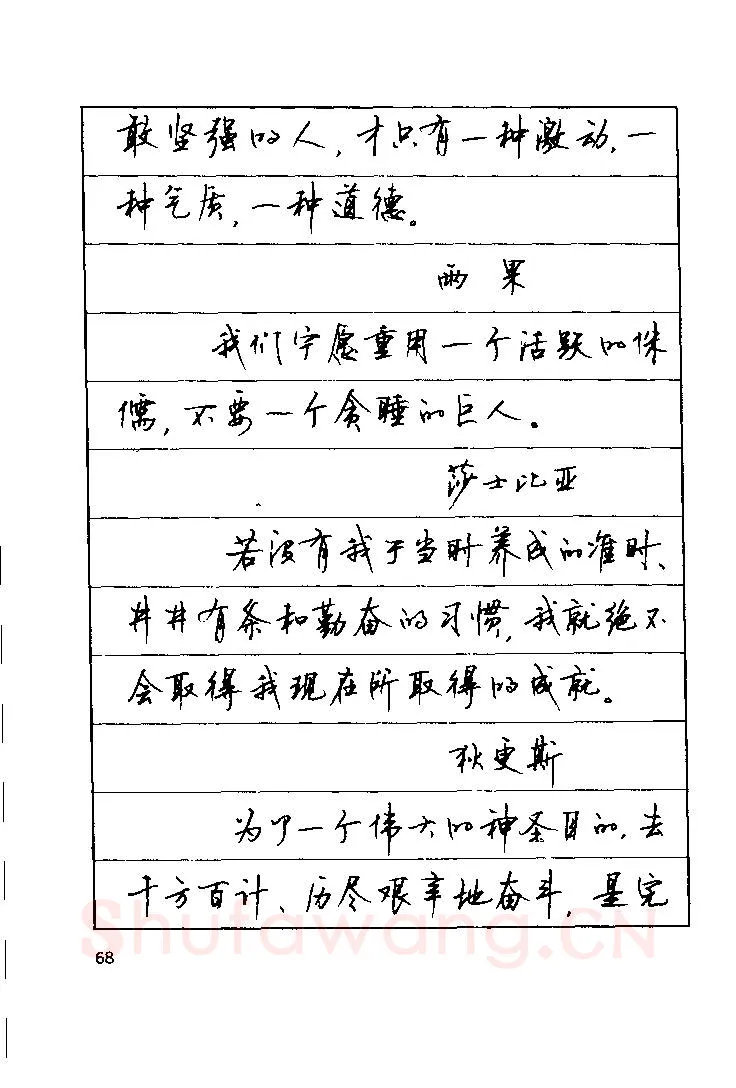 敢坚强的人,才只有一种激动,一
种气质,一种道德。
雨果
我们宁愿重用一个活跃的侏
儒,不要一个贪睡的巨人。
莎士比亚
若没有我于当时养成的准时、
井井有条和勤奋的习惯,我就绝不
会取得我现在所取得的成就。
狄更斯
为了一个伟大的神圣目的,去
千方百计、历尽艰辛地奋斗,是完
Shufawang.CN
68